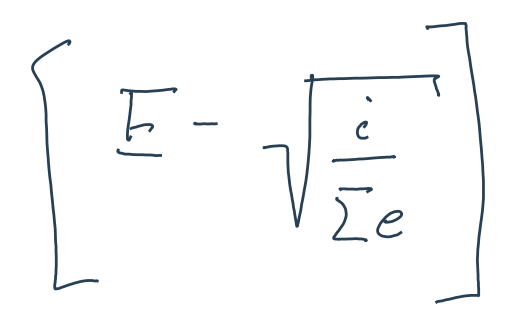 [ E - √(i / Σe) ]